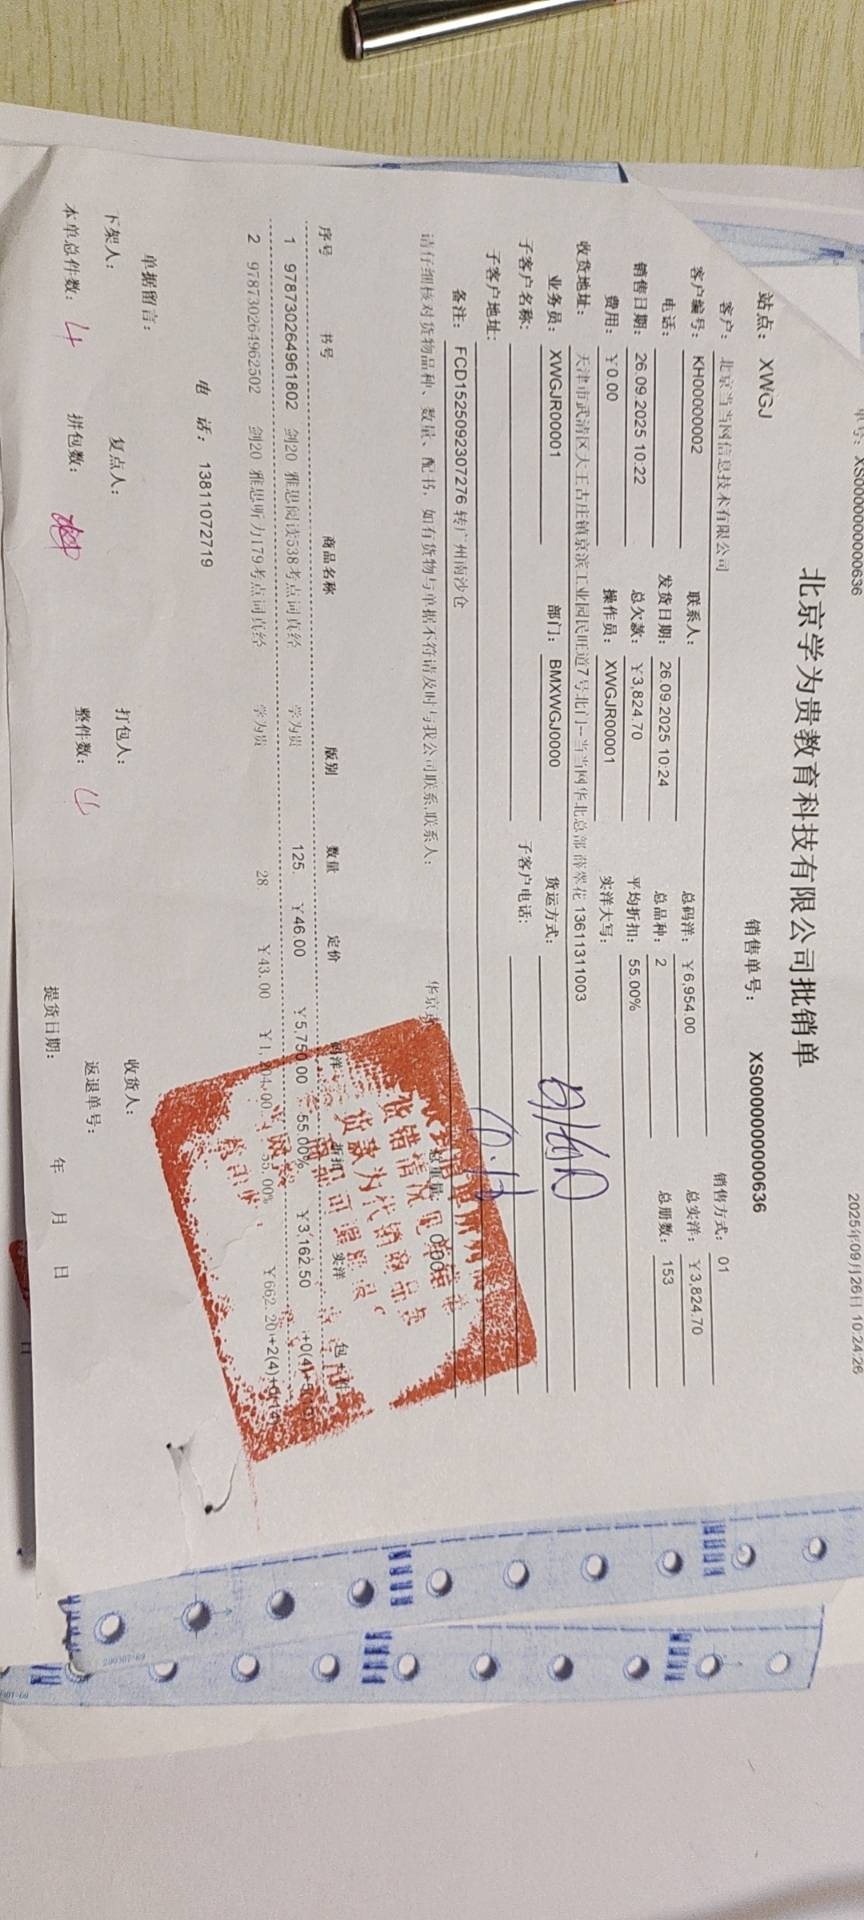 单号：XS0000000000636
2025年09月26日 10:24:26
北京学为贵教育科技有限公司批销单
站点： XWGJ 销售单号： XS0000000000636
客户： 北京当当网信息技术有限公司 销售方式： 01
客户编号： KH00000002 联系人： 总码洋： ￥6,954.00 总实洋： ￥3,824.70
电话： 发货日期： 26.09.2025 10:24 总品种： 2 总册数： 153
销售日期： 26.09.2025 10:22 总欠款： ￥3,824.70 平均折扣： 55.00%
费用： ￥0.00 操作员： XWGJR00001 实洋大写：
收货地址： 天津市武清区大王古庄镇京滨工业园民旺道7号北门-当当网华北总部 薛翠花 13611311003
业务员： XWGJR00001 部门： BMXWGJ0000 货运方式：
子客户名称： 子客户电话：
子客户地址：
备注： FCD1525092307276 转广州南沙仓
请仔细核对货物品种、数量、配书，如有货物与单据不符请及时与我公司联系,联系人： 华京
总重量： 0.00
序号 书号 商品名称 版别 数量 定价 码洋 折扣 实洋
1 978730264961802 剑20 雅思阅读538考点词真经 学为贵 125 ￥46.00 ￥5,750.00 55.00% ￥3,162.50
2 978730264962502 剑20 雅思听力179考点词真经 学为贵 28 ￥43.00 ￥1,204.00 55.00% ￥662.20
货款为代销商品
电 话： 13811072719
单据留言：
下架人： 复点人： 打包人： 收货人：
本单总件数： 4 拼包数： 整件数： 返退单号：
提货日期： 年 月 日